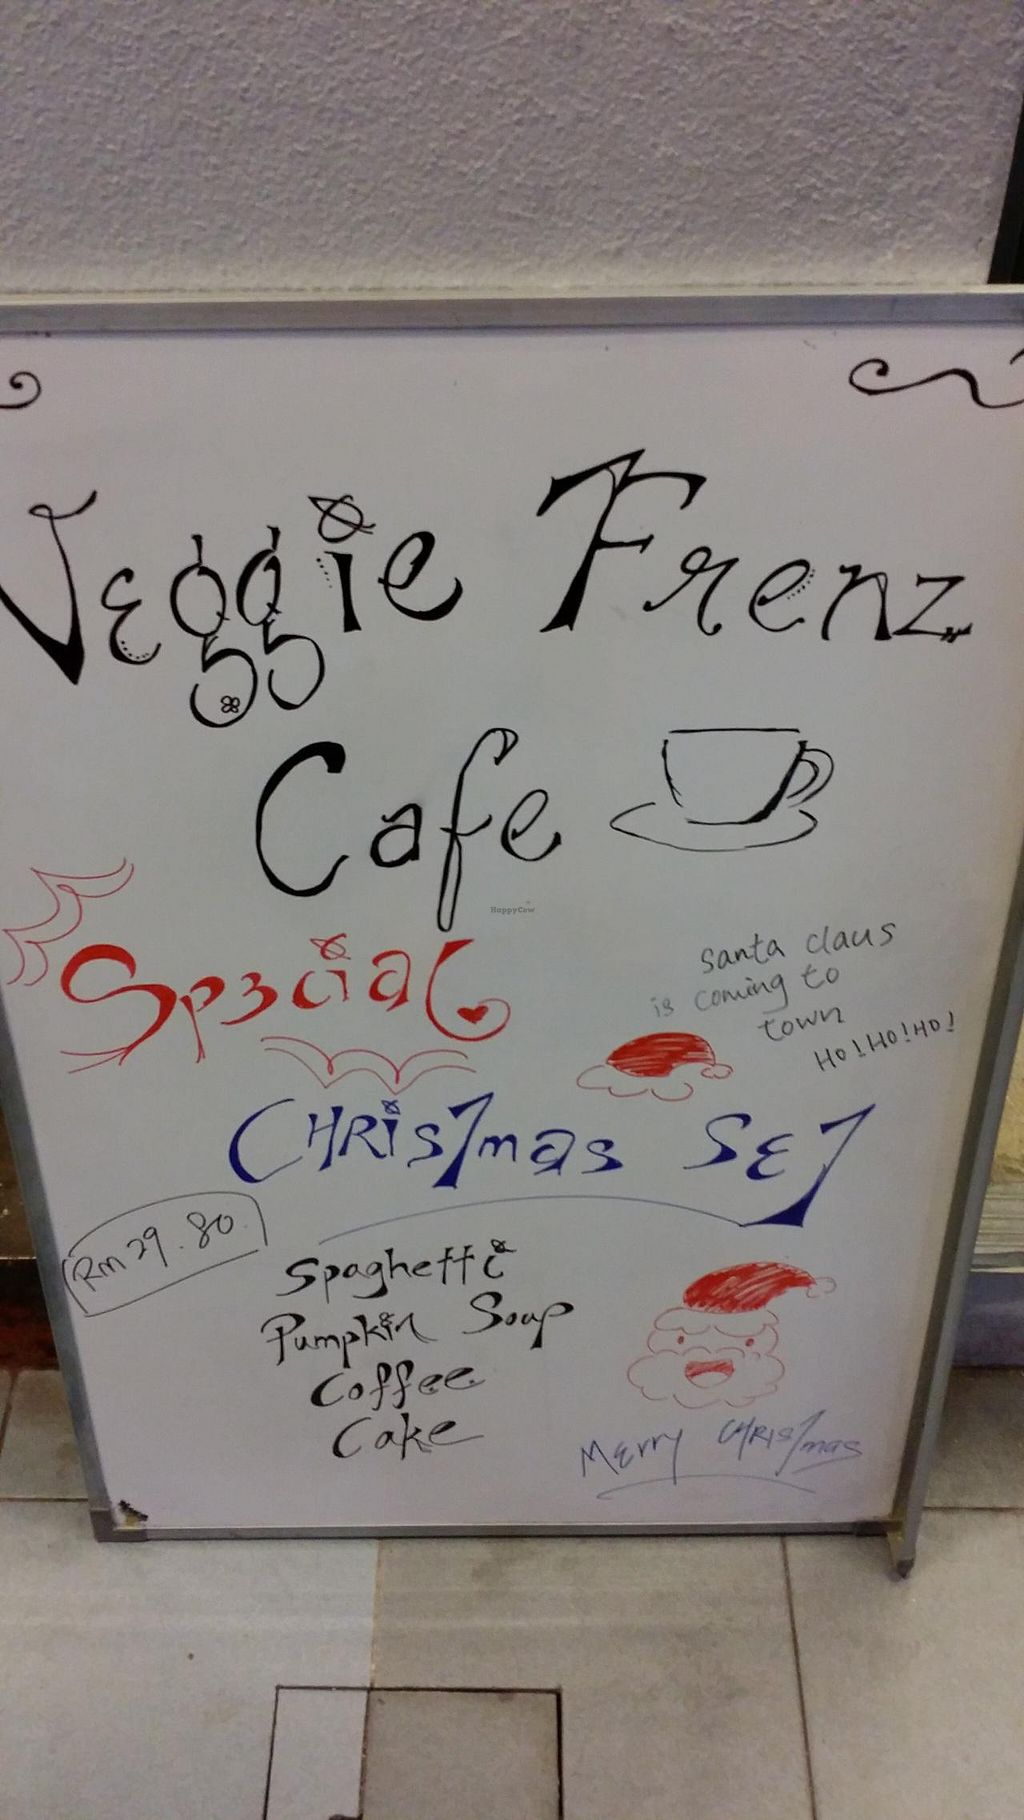 Veggie Frenz
Cafe
HappyCow
Special
Santa claus
is coming to
town
HO!HO!HO!
CHRisTmas SET
RM 29.80
Spaghetti
Pumpkin Soup
Coffee
Cake
Merry CHRISTmas